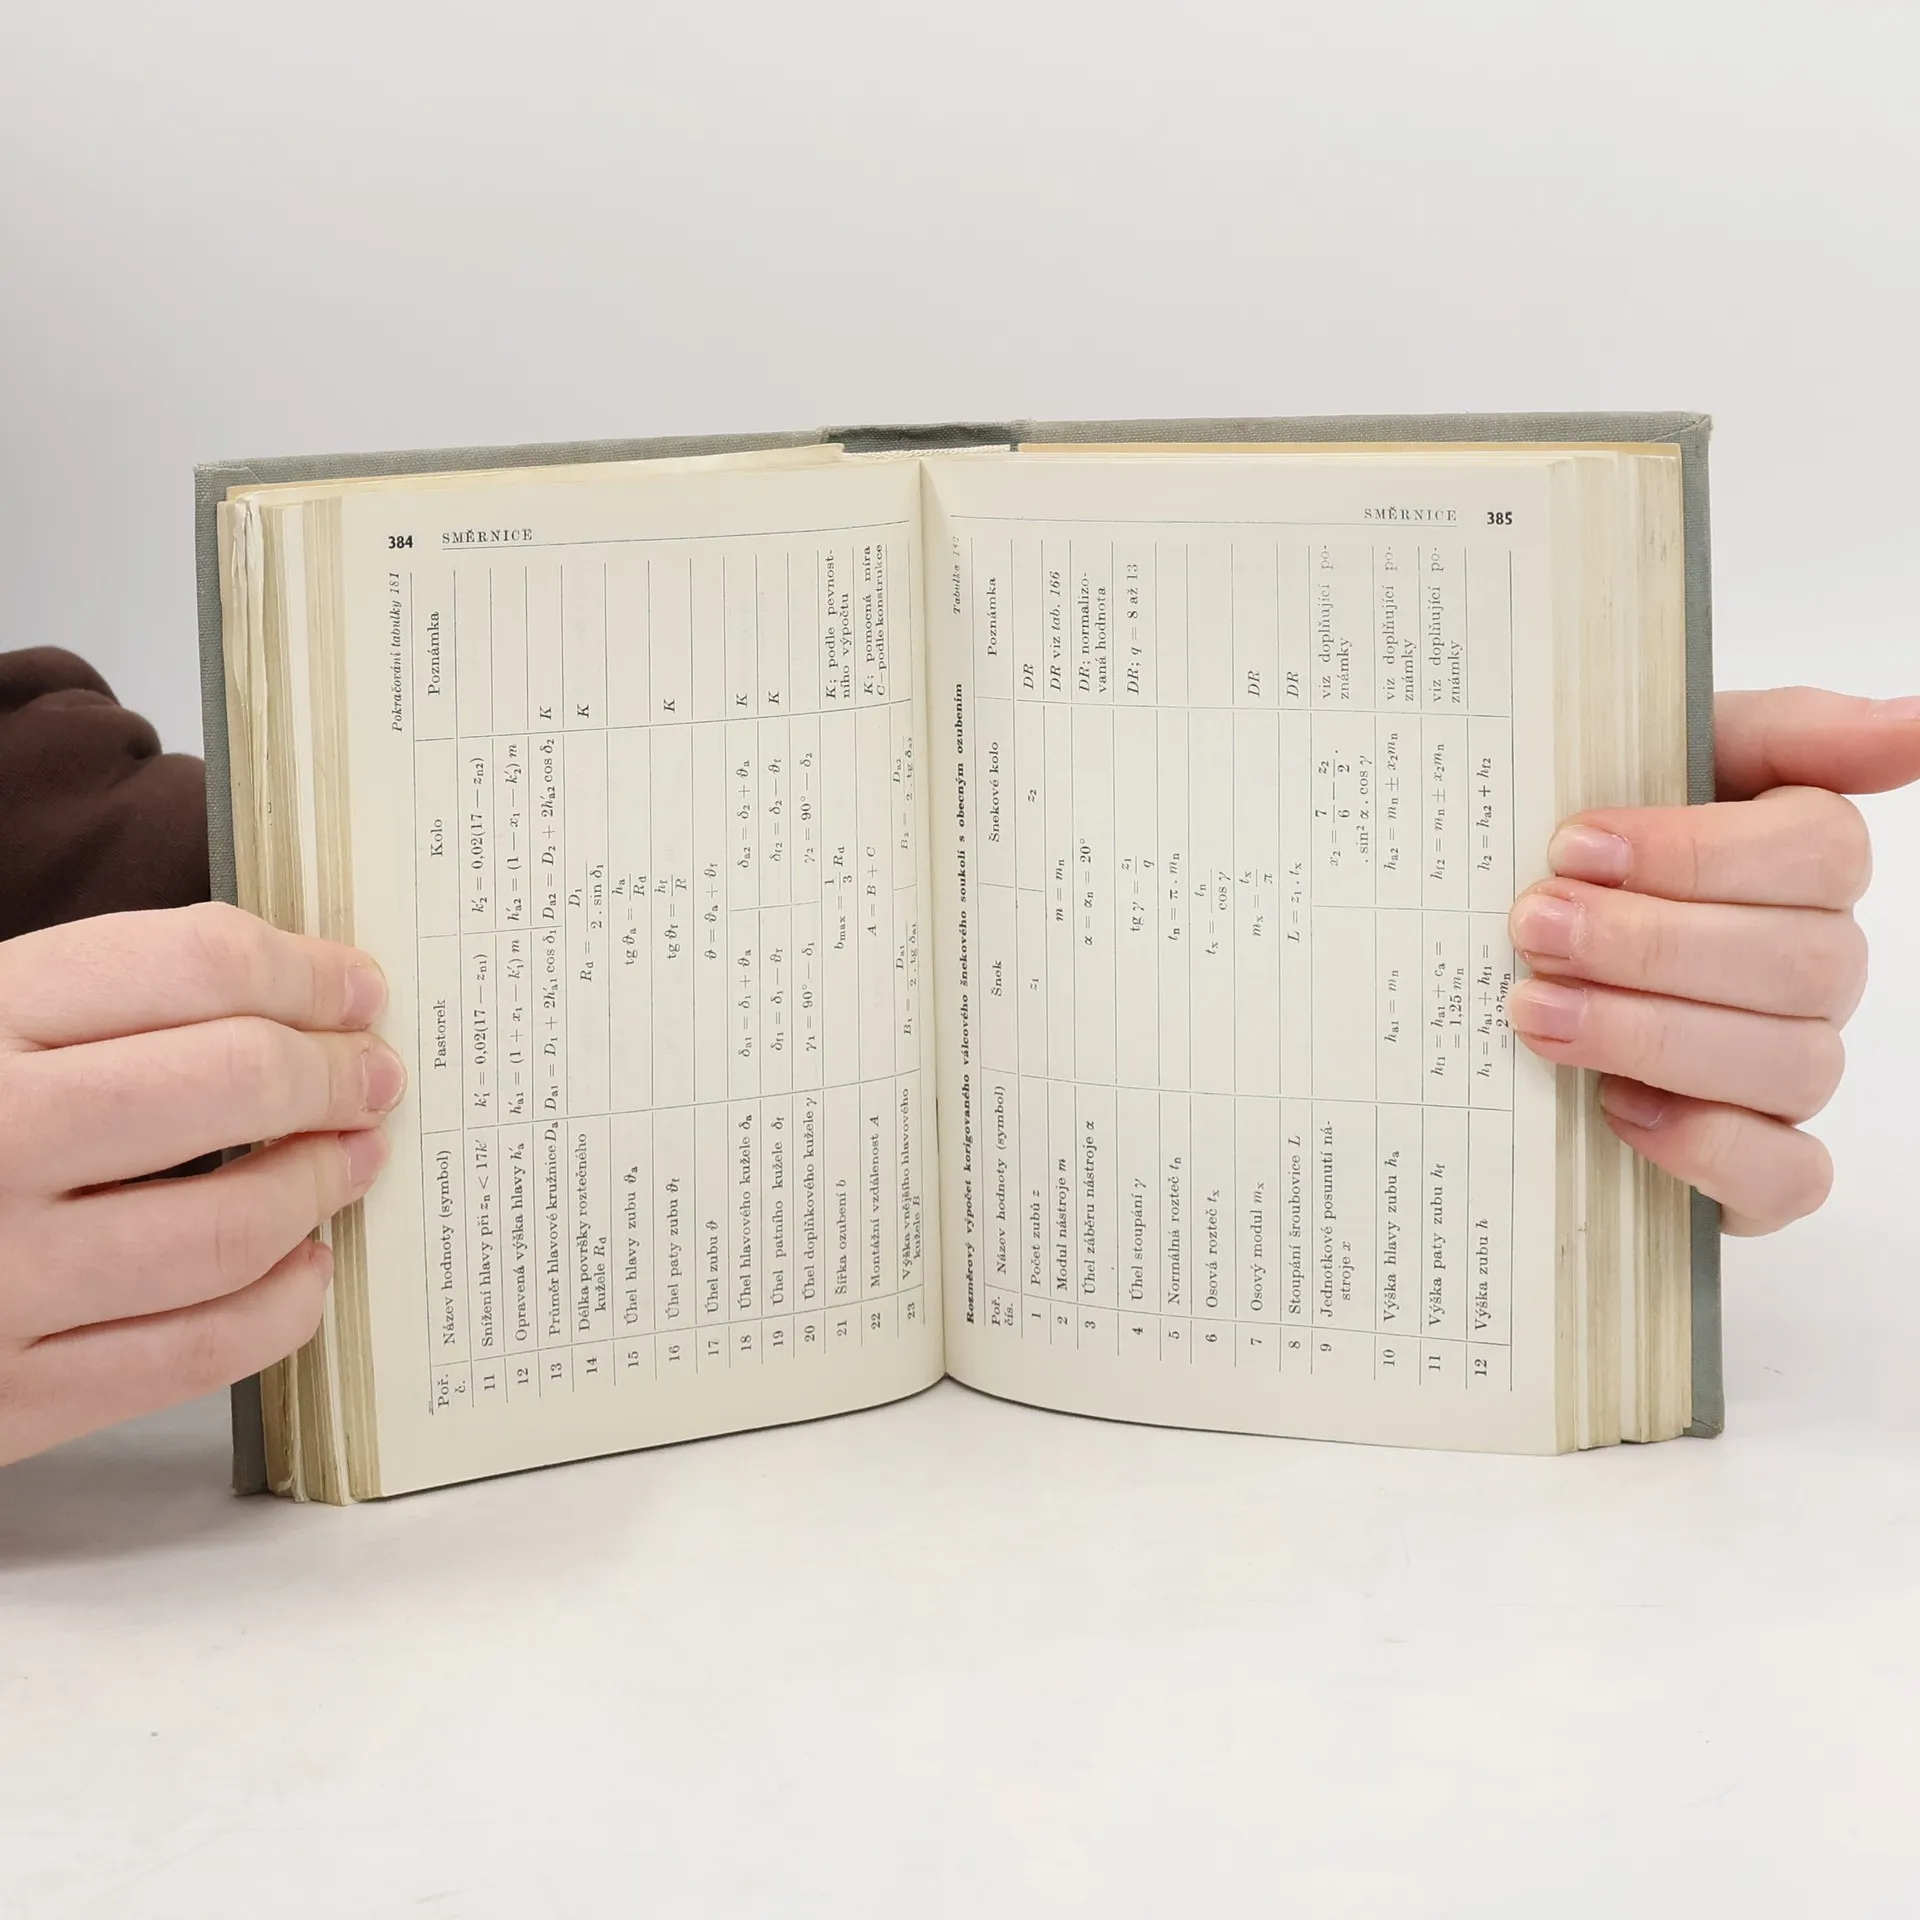 384 SMĚRNICE
Pokračování tabulky 181
Poř. č. Název hodnoty (symbol) Pastorek Kolo Poznámka
11 Snížení hlavy při zn < 17k′ k′1 = 0,02(17 — zn1) k′2 = 0,02(17 — zn2)
12 Opravená výška hlavy h′a h′a1 = (1 + x1 — k′1) m h′a2 = (1 — x1 — k′2) m
13 Průměr hlavové kružnice Da Da1 = D1 + 2h′a1 cos δ1 Da2 = D2 + 2h′a2 cos δ2 K
14 Délka površky roztečného kužele Rd Rd = D1 / 2 . sin δ1 K
15 Úhel hlavy zubu ϑa tg ϑa = ha / Rd
16 Úhel paty zubu ϑf tg ϑf = hf / R K
17 Úhel zubu ϑ ϑ = ϑa + ϑf
18 Úhel hlavového kužele δa δa1 = δ1 + ϑa δa2 = δ2 + ϑa K
19 Úhel patního kužele δf δf1 = δ1 — ϑf δf2 = δ2 — ϑf K
20 Úhel doplňkového kužele γ γ1 = 90° — δ1 γ2 = 90° — δ2
21 Šířka ozubení b bmax = 1/3 Rd K; podle pevnost-
ního výpočtu
22 Montážní vzdálenost A A = B + C K; pomocná míra
C—podle konstrukce
23 Výška vnějšího hlavového kužele B B1 = Da1 / 2 . tg δa1 B2 = Da2 / 2 . tg δa2
SMĚRNICE 385
Tabulka 182
Rozměrový výpočet korigovaného válcového šnekového soukolí s obecným ozubením
Poř. čís. Název hodnoty (symbol) Šnek Šnekové kolo Poznámka
1 Počet zubů z z1 z2 DR
2 Modul nástroje m m = mn DR viz tab. 166
3 Úhel záběru nástroje α α = αn = 20° DR; normalizo-
vaná hodnota
4 Úhel stoupání γ tg γ = z1 / q DR; q = 8 až 13
5 Normálná rozteč tn tn = π . mn
6 Osová rozteč tx tx = tn / cos γ
7 Osový modul mx mx = tx / π DR
8 Stoupání šroubovice L L = z1 . tx DR
9 Jednotkové posunutí ná-
stroje x x2 = 7/6 — z2/2 .
. sin² α . cos γ viz doplňující po-
známky
10 Výška hlavy zubu ha ha1 = mn ha2 = mn ± x2mn viz doplňující po-
známky
11 Výška paty zubu hf hf1 = ha1 + ca =
= 1,25 mn hf2 = mn ± x2mn viz doplňující po-
známky
12 Výška zubu h h1 = ha1 + hf1 =
= 2,25mn h2 = ha2 + hf2